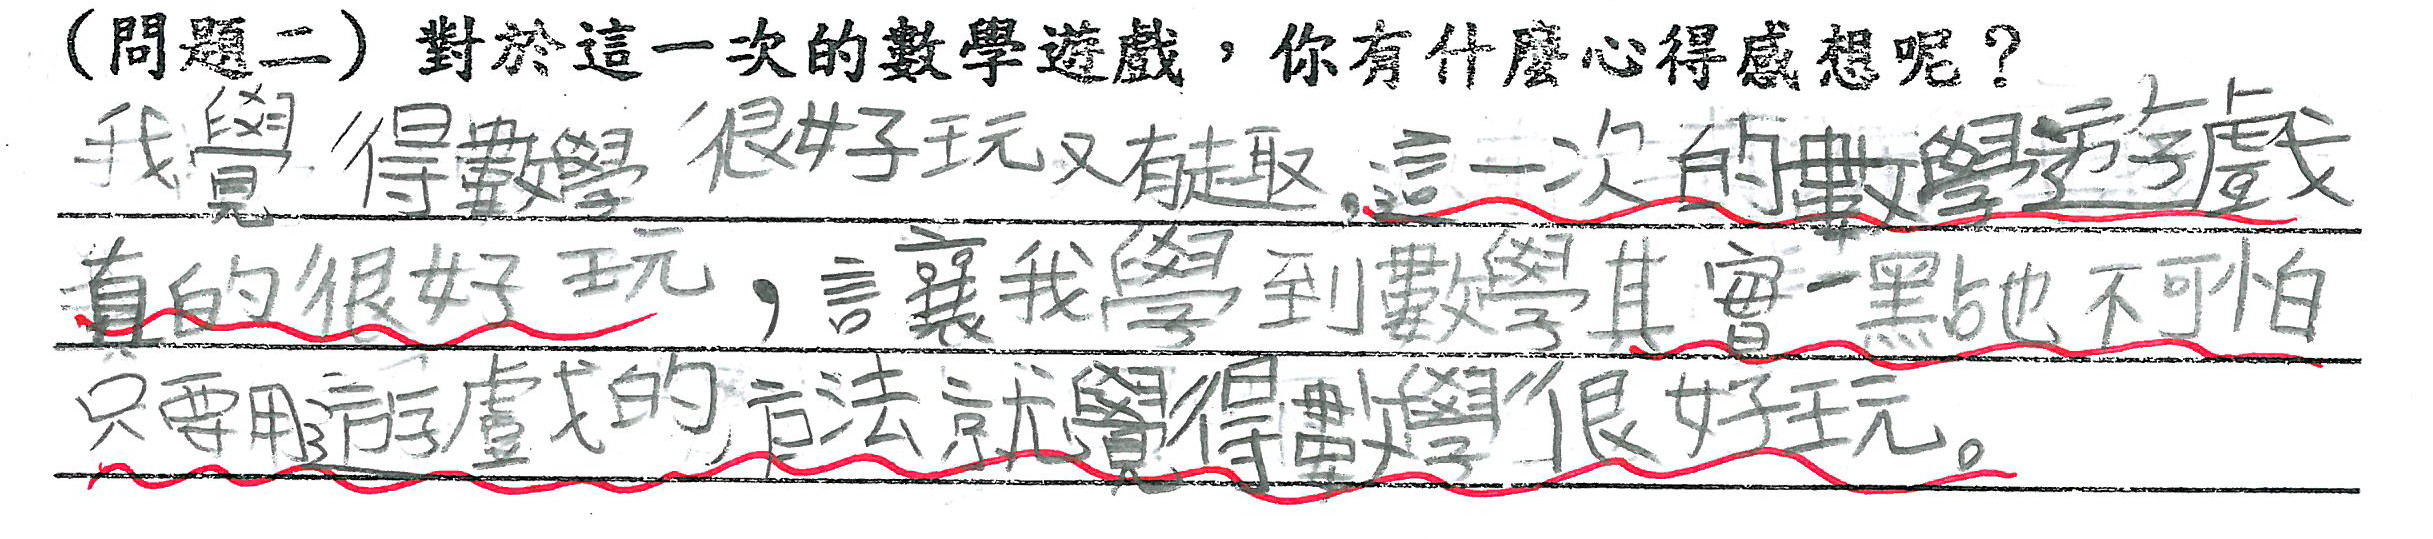 (問題二) 對於這一次的數學遊戲，你有什麼心得感想呢？
我覺得數學很好玩又有趣，這一次的數學遊戲
真的很好玩，讓我學到數學其實一點也不可怕
只要用遊戲的方法就覺得數學很好玩。